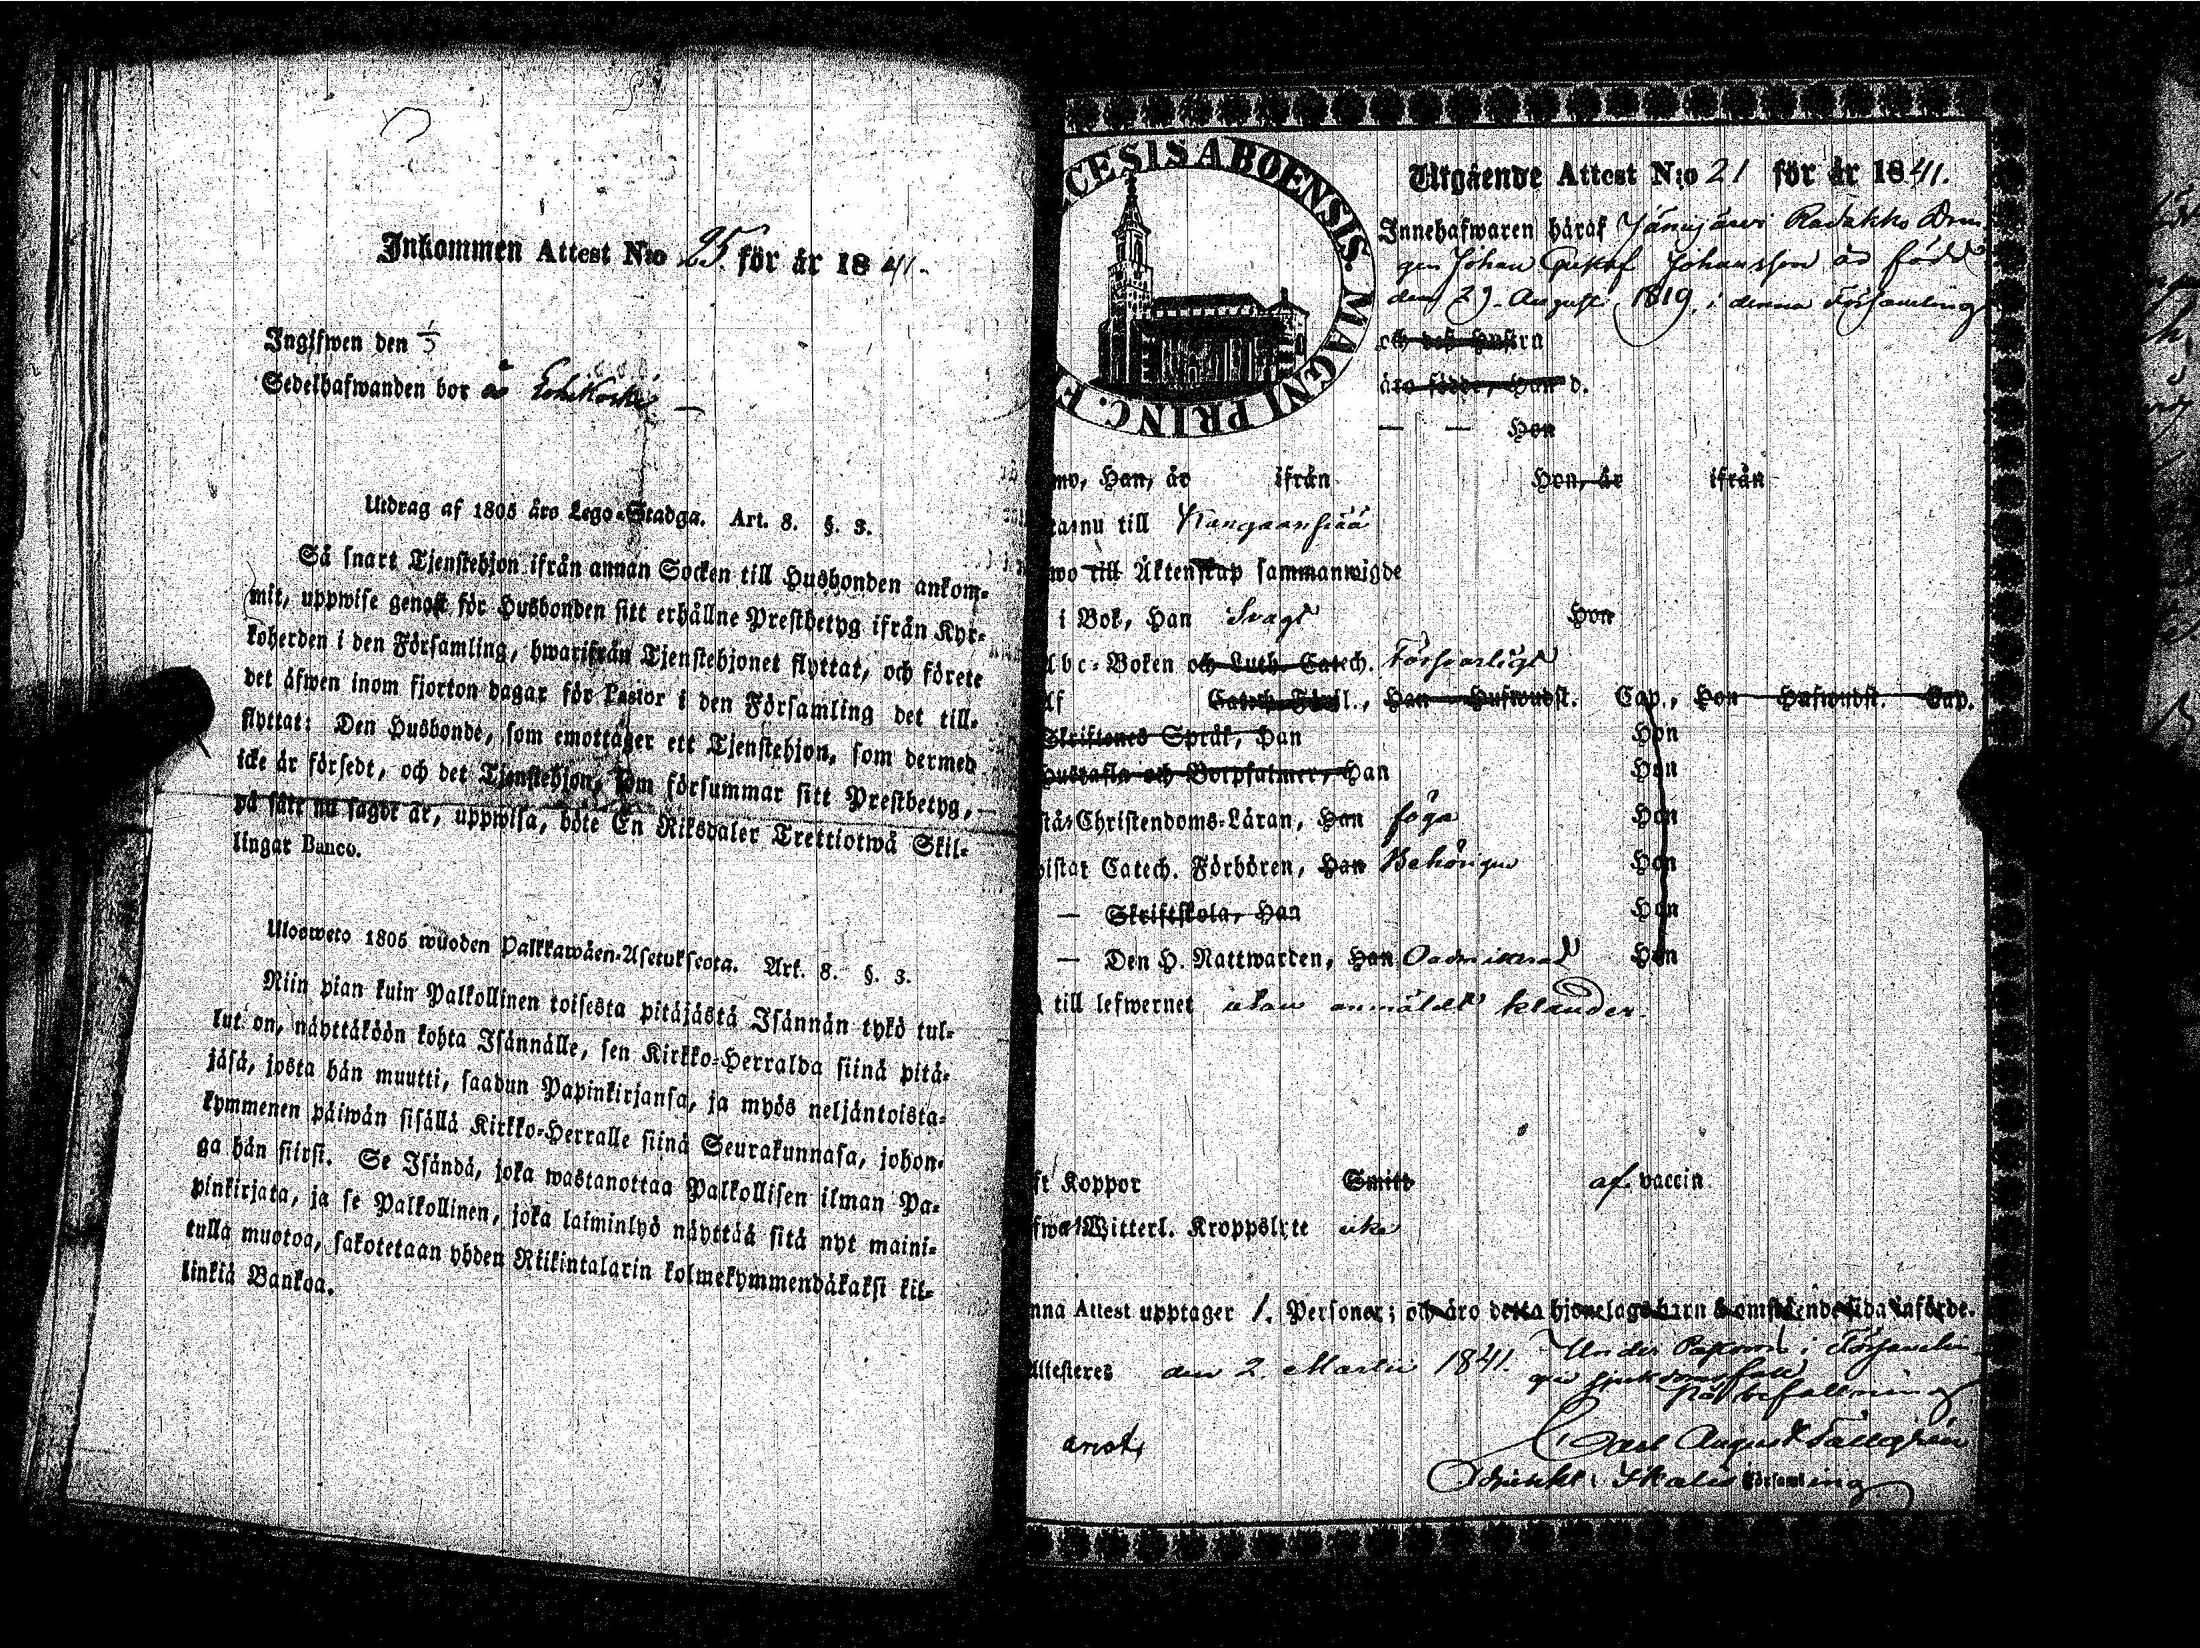 Inkommen Attest N:o 25. för år 1841.
Ingifwen den 1/5
Sedelhafwanden bor å Lohikoski
Utdrag af 1805 års Lego-Stadga. Art. 8. §. 3.
Så snart Tjenstehjon ifrån annan Socken till Husbonden ankom-
mit, uppwise genast för Husbonden sitt erhållne Prestbetyg ifrån Kyr-
koherden i den Församling, hwarifrån Tjenstehjonet flyttat, och förete
det äfwen inom fjorton dagar för Pastor i den Församling det till-
flyttat: Den Husbonde, som emottager ett Tjenstehjon, som dermed
icke är försedt, och det Tjenstehjon, som försummar sitt Prestbetyg,
på sätt nu sagdt är, uppwisa, böte En Riksdaler Trettiotwå Skil-
lingar Banco.
Ulosweto 1805 wuoden Palkkawäen-Asetuksesta. Art. 8. §. 3.
Niin pian kuin Palkollinen toisesta pitäjästä Isännän tykö tul-
lut on, näyttäköön kohta Isännälle, sen Kirkko-Herralda siinä pitä-
jäsä, josta hän muutti, saadun Papinkirjansa, ja myös neljäntoista-
kymmenen päiwän sisällä Kirkko-Herralle siinä Seurakunnasa, johon-
ga hän siirsi. Se Isändä, joka wastanottaa Palkollisen ilman Pa-
pinkirjata, ja se Palkollinen, joka laiminlyö näyttää sitä nyt maini-
tulla muotoa, sakotetaan yhden Riikintalarin kolmekymmendäkaksi kil-
linkiä Bankoa.
CESIS ABOENSIS. MAGNI PRINC. F
Utgående Attest N:o 21 för år 1841.
Innehafwaren häraf Jänijärwi Dren
gen Johan Gustaf Johansson är född
den 29. Augusti 1819, i denna Församling
och dess Hustru
äro födde, Han d.
— — Hon
mo, Han, är ifrån Hon, är ifrån
nu till Kangaanpää
wo till Äktenskap sammanwigde
i Bok, Han Svagt Hon
Abc-Boken och Luth. Catech. Försvarligt
Af Catech. Förkl., Han Hufwudst. Cap., Hon Hufwudst. Cap.
Skriftenes Språk, Han Hon
Hustafla och Botpsalmer, Han Hon
stå Christendoms-Läran, Han föga Hon
wistat Catech. Förhören, Han Behörigen Hon
— Skriftskola, Han Hon
— Den H. Nattwarden, Han Oadmitterad Hon
till lefwernet utan anmäldt klander.
ft Koppor Smitt af vaccin
Witterl. Kroppslyte icke
nna Attest upptager 1. Personer; och äro detta hjonelags barn å omstående sida införde.
Attesteres den 2. Martii 1841. Under Pastorns i Församlin-
gen sjukdomsfall
På befallning
Carl August Tallgren
Adjunkt i Ikalis Församling